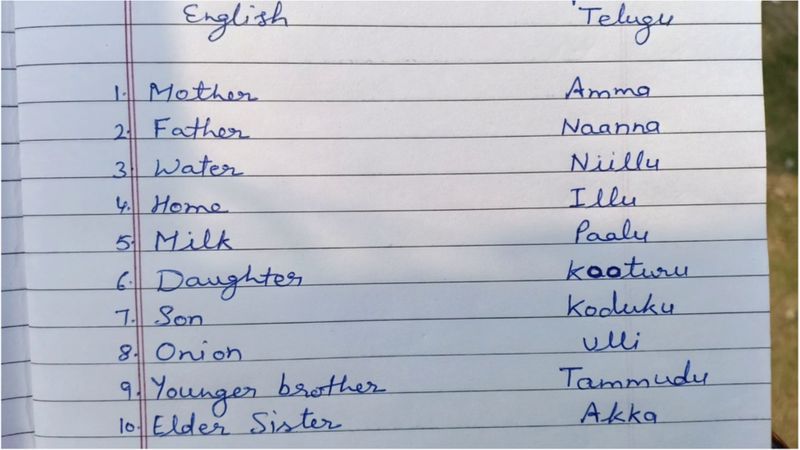 English Telugu
1. Mother Amma
2. Father Naanna
3. Water Niillu
4. Home Illu
5. Milk Paalu
6. Daughter Kooturu
7. Son Koduku
8. Onion Ulli
9. Younger brother Tammudu
10. Elder Sister Akka